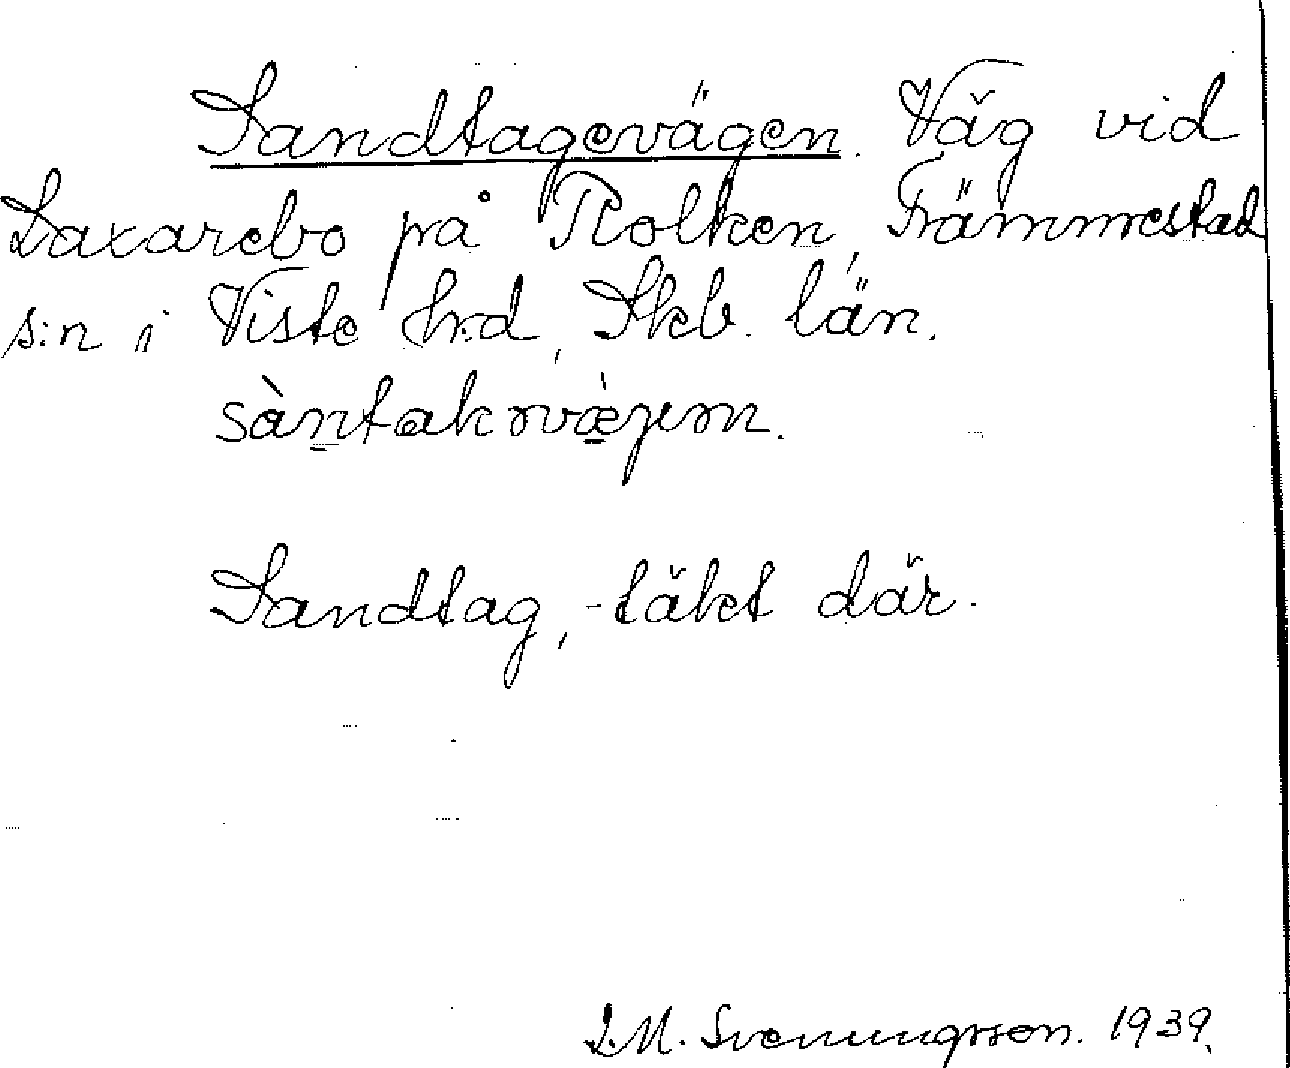 Sandtagevägen. Väg vid
Laxarebo på Rolken, Främmestad
s:n i Viste hrd, Skb. län.
sàntakvæ̀jen.
Sandtag, -täkt där.
J.M. Svenungsson. 1939.